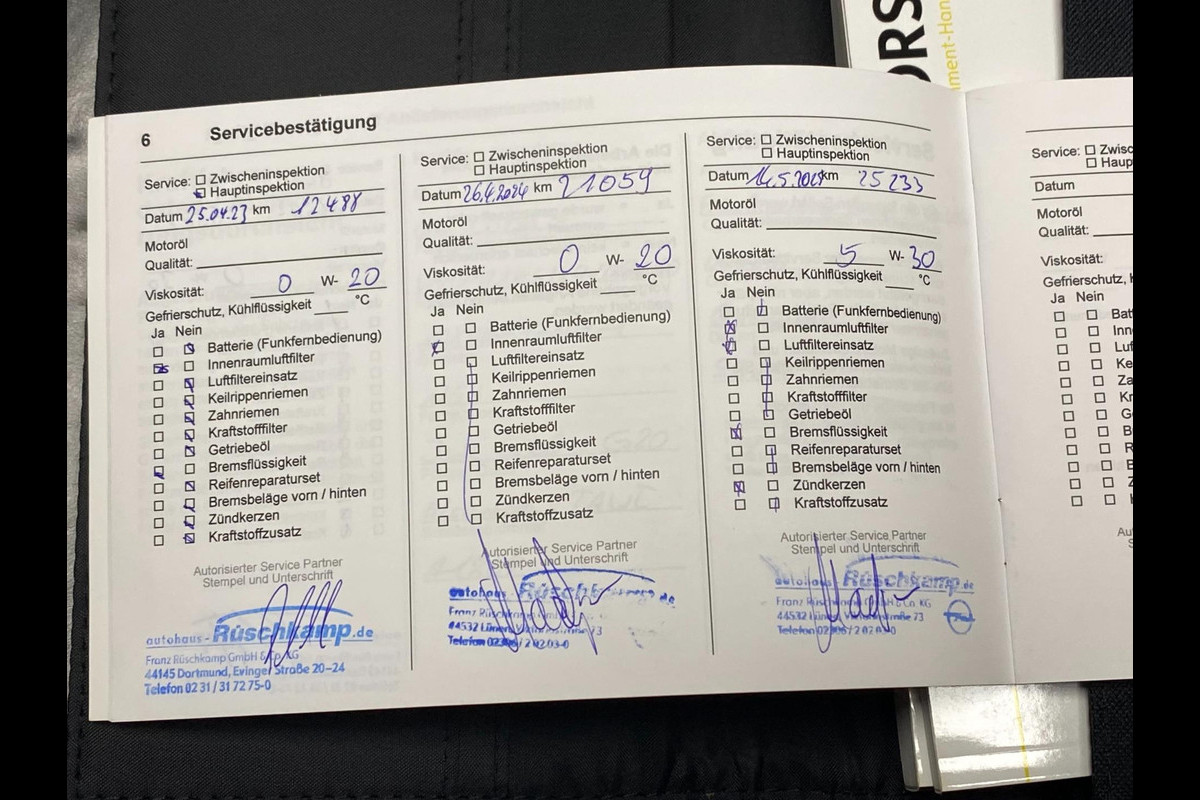 ORS
ment-Han
6 Servicebestätigung
Service: Zwischeninspektion
Hauptinspektion
Datum 25.04.23 km 12488
Motoröl
Qualität:
Viskosität: 0 W- 20
Gefrierschutz, Kühlflüssigkeit °C
Ja Nein
Batterie (Funkfernbedienung)
Innenraumluftfilter
Luftfiltereinsatz
Keilrippenriemen
Zahnriemen
Kraftstofffilter
Getriebeöl
Bremsflüssigkeit
Reifenreparaturset
Bremsbeläge vorn / hinten
Zündkerzen
Kraftstoffzusatz
Autorisierter Service Partner
Stempel und Unterschrift
autohaus - Rüschkamp.de
Franz Rüschkamp GmbH & Co. KG
44145 Dortmund, Evinger Straße 20-24
Telefon 02 31 / 31 72 75-0
Service: Zwischeninspektion
Hauptinspektion
Datum 26.4.2024 km 21059
Motoröl
Qualität:
Viskosität: 0 W- 20
Gefrierschutz, Kühlflüssigkeit °C
Ja Nein
Batterie (Funkfernbedienung)
Innenraumluftfilter
Luftfiltereinsatz
Keilrippenriemen
Zahnriemen
Kraftstofffilter
Getriebeöl
Bremsflüssigkeit
Reifenreparaturset
Bremsbeläge vorn / hinten
Zündkerzen
Kraftstoffzusatz
Autorisierter Service Partner
Stempel und Unterschrift
autohaus
Franz
44532 Lünen
Telefon
Service: Zwischeninspektion
Hauptinspektion
Datum km 25233
Motoröl
Qualität:
Viskosität: 5 W- 30
Gefrierschutz, Kühlflüssigkeit °C
Ja Nein
Batterie (Funkfernbedienung)
Innenraumluftfilter
Luftfiltereinsatz
Keilrippenriemen
Zahnriemen
Kraftstofffilter
Getriebeöl
Bremsflüssigkeit
Reifenreparaturset
Bremsbeläge vorn / hinten
Zündkerzen
Kraftstoffzusatz
Autorisierter Service Partner
Stempel und Unterschrift
autohaus - Rüschkamp.de
Franz Co. KG
44532 73
Telefon
Service: Zwisc
Haup
Datum
Motoröl
Qualität:
Viskosität:
Gefrierschutz, Kühlfl
Ja Nein
Batt
Inn
Luf
Ke
Za
Kr
G
B
R
B
Z
K
Au
S